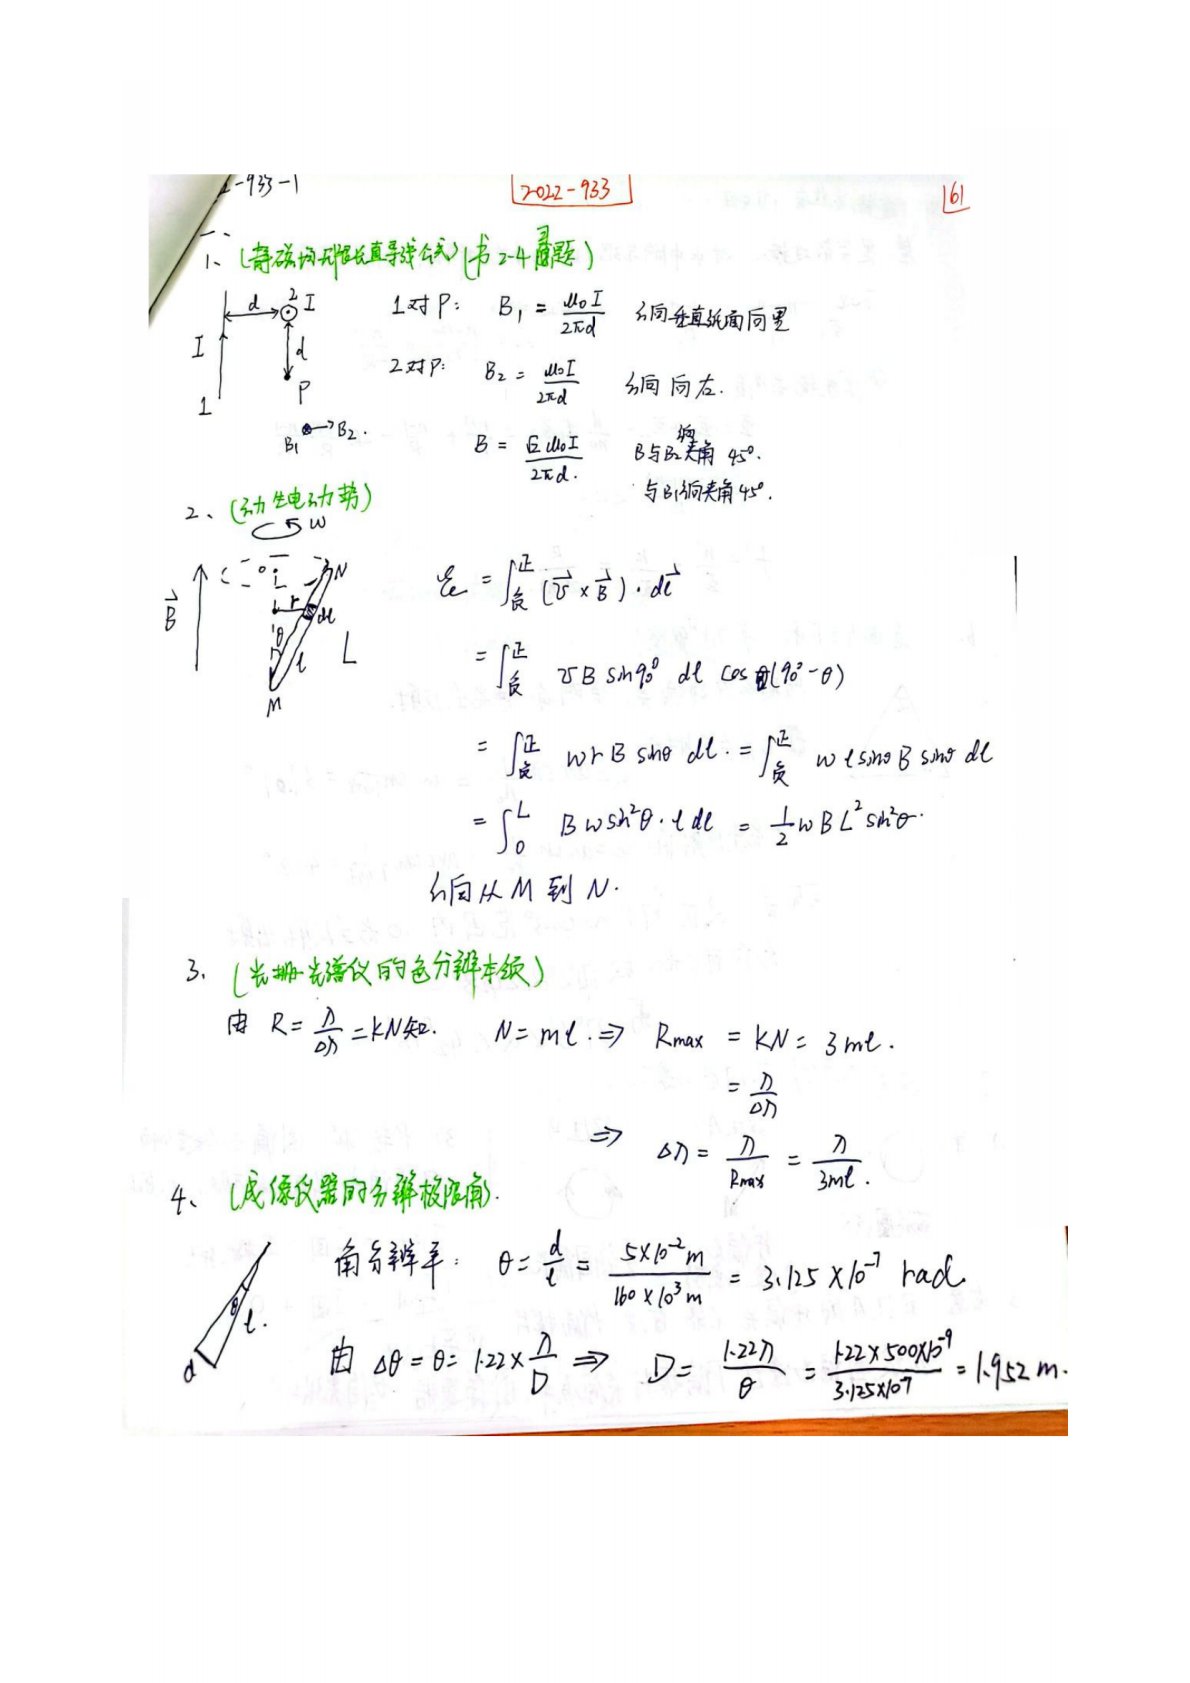 -933-1
2022-933
161
一、
1、(静磁场无限长直导线公式)(书2-4习题)
d 2 I
I d
1 P
B₁ B₂.
1对P: B₁ = μ₀I/2πd 方向垂直纸面向里
2对P: B₂ = μ₀I/2πd 方向向左.
B = √2μ₀I/2πd. B与B₂方向夹角45°.
与B₁方向夹角45°.
2、(动生电动势)
w
B⃗ o N r dl θ l L M
ℰ = ∫负正 (v⃗ × B⃗)·dl⃗
= ∫负正 vB sin90° dl cos(90°-θ)
= ∫负正 wrB sinθ dl. = ∫负正 wlsinθ B sinθ dl
= ∫₀ᴸ Bwsin²θ·l dl = 1/2 wBL²sin²θ.
方向从M到N.
3、(光栅光谱仪的色分辨本领)
由 R = λ/Δλ = kN知. N = ml. ⇒ Rmax = kN = 3ml.
= λ/Δλ
⇒ Δλ = λ/Rmax = λ/3ml.
4、(成像仪器的分辨极限角).
θ l. d
角分辨率: θ = d/l = 5×10⁻²m/160×10³m = 3.125×10⁻⁷ rad.
由 Δθ = θ = 1.22×λ/D ⇒ D = 1.22λ/θ = 1.22×500×10⁻⁹/3.125×10⁻⁷ = 1.952m.